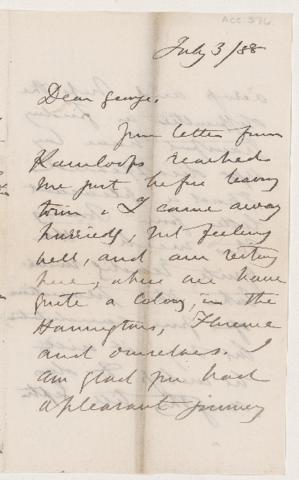 ACC 576
July 3/88
Dear George,
Your letter from
Kamloops reached
me just before leaving
town & I came away
hurriedly, not feeling
well, and am resting
here, where we have
quite a colony, in the
Harringtons, Florence
and ourselves. I
am glad you had
a pleasant journey